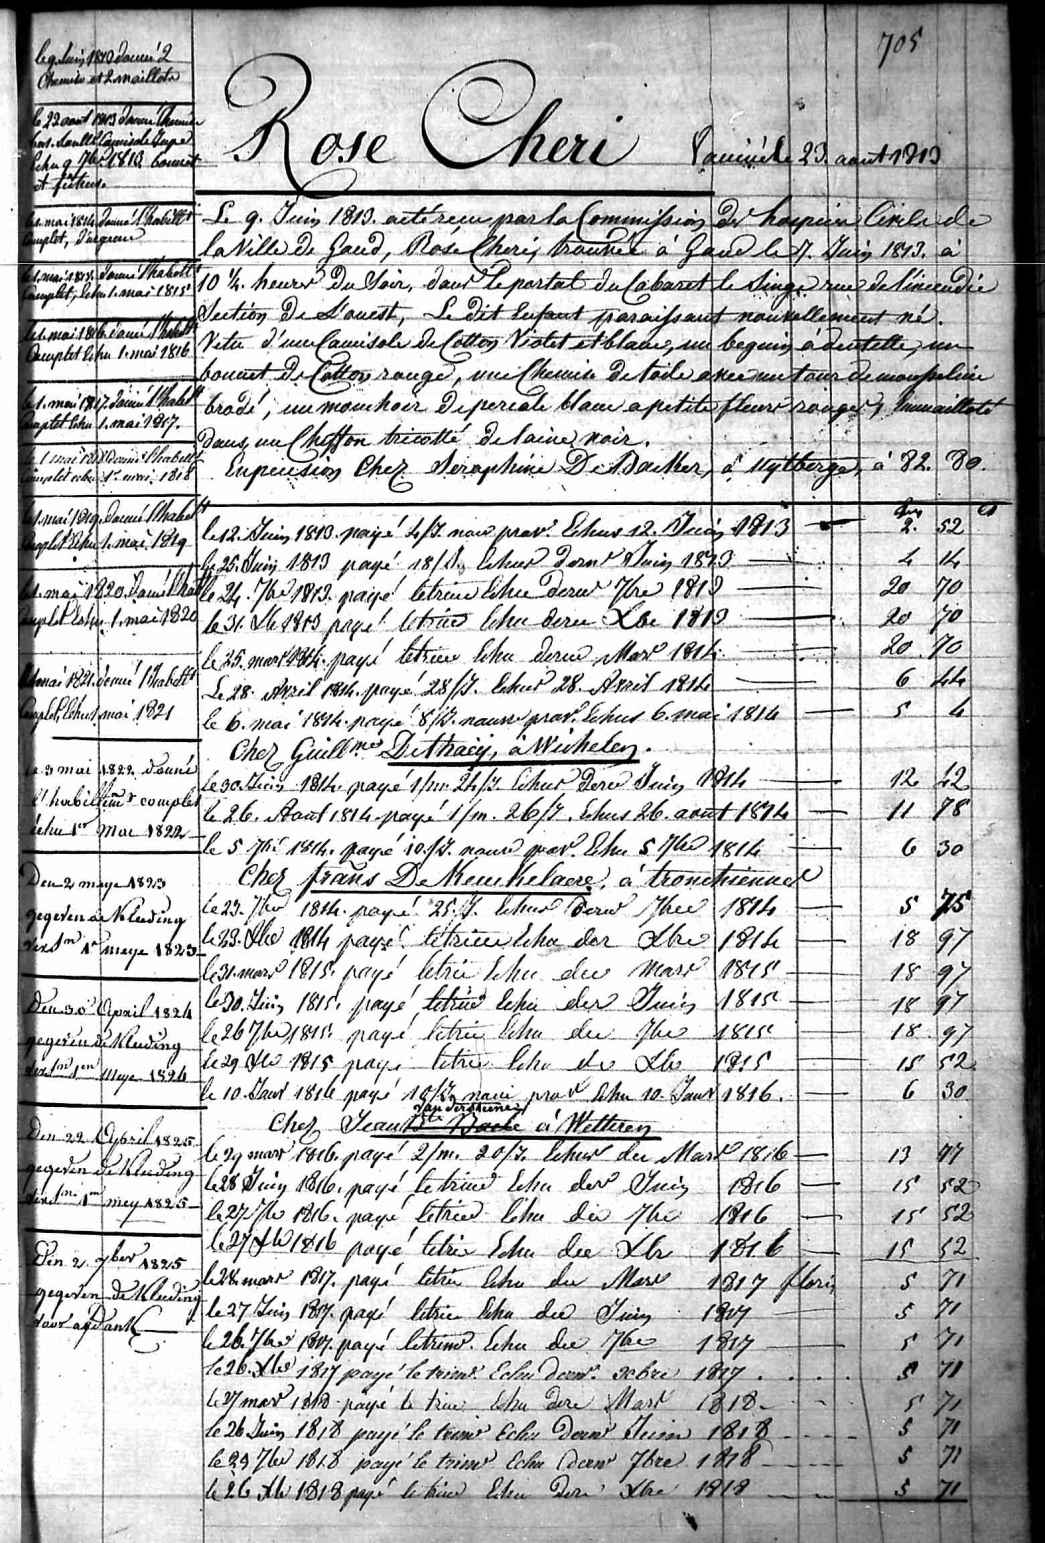 705
Rose Cheri
Vaccinée le 23. aout 1813
le 9. Juin 1813 donné 2
Chemises et 2 maillots
le 22 aout 1813 donné Chemise
bas. Camisole Jupe
Echu 9 7bre 1813 bonnet
et fichus.
le 1. mai 1814. donné l'habillt
Complet,
le 1. mai 1815. donné l'habillt
Complet, Echu 1. mai 1815
le 1. mai 1816. donné l'habillt
Complet Echu 1. mai 1816
le 1. mai 1817. donné l'habillt
Complet Echu 1. mai 1817.
le 1 mai 1818 donné l'habillt
Complet echu 1r mai 1818
le 1. mai 1819. donné l'habillt
Complet Echu 1. mai 1819
le 1. mai 1820. donné l'habillt
Complet Echu 1. mai 1820
le 1 mai 1821. donné l'habillt
Complet, Echu 1 mai 1821
le 3 mai 1822. donné
l'habillemt complet
échu 1er Mai 1822
Den 2 maye 1823
gegeven de Kleeding
1e maye 1823
Den 30 April 1824
gegeven de Kleeding
1en Meye 1824
Den 22 April 1825
gegeven de Kleeding
1en mey 1825
Den 2 7ber 1825
gegeven de Kleeding
voor afdank
Le 9. Juin 1813. acté reçu par la Commission des hospices Civils de
la Ville de Gand, Rose Cheri, trouvée à Gand le 7. Juin 1813. à
10 ½ heures Du Soir, dans le portal du Cabaret le Singe rue de l'incendie
Section de L'ouest, Le dit Enfant paraissant nouvellement né.
Vetu d'une Camisole de Cotton Violet et blanc, un beguin à dentelle, un
bonnet De Cotton rouge, une Chemise de toile avec un tour de mousseline
brodé, un mouchoir de percale blanc a petite fleurs rouges, Emmailloté
dans un Chiffon tricotté de laine noir.
En pension Chez Seraphine De Backer, à Uytberge, à 82. 80.
le 12. Juin 1813. payé 4/J. nour prov. Echus 12. Juin 1813 2. 52
le 25. Juin 1813 payé 18/J. Echus dernr Juin 1813 4 14
le 24. 7bre 1813. payé letrim Echu dernr 7bre 1813 20 70
le 31. Xbre 1813 payé letrim Echu dernr Xbre 1813 20 70
le 25. mars 1814. payé letrim Echu dernr Mars 1814 20 70
Le 28. Avril 1814. payé 28/J. Echus 28. Avril 1814 6 44
le 6. mai 1814. payé 8/J. nour prov. Echus 6. mai 1814 5 4
Chez Guillme Dethraeij, à Wichelen.
le 30. Juin 1814. payé 1/m. 24/J. Echus Dernr Juin 1814 12 42
le 26. Aout 1814. payé 1/m. 26/J. Echus 26. aout 1814 11 78
le 5 7bre 1814. payé 10/J. nour prov. Echu 5 7bre 1814 6 30
Chez frans De Keukelaere, à tronchiennes
le 23. 7bre 1814. payé 25/J. Echus dernr 7bre 1814 5 75
le 23. Xbre 1814 payé letrim Echu der Xbre 1814 18 97
le 31. mars 1815. payé letrim Echu der Mars 1815 18 97
le 30. Juin 1815. payé letrim Echu der Juin 1815 18 97
le 26 7bre 1815. payé letrim Echu der 7bre 1815 18. 97
le 29 Xbre 1815 payé letrim Echu de Xbre 1815 15 52
le 10. Janv 1816 payé 10/J. nour prov Echu 10. Janv 1816. 6 30
Chez Jean à Wetteren
le 29 mars 1816. payé 2/m. 20/J. Echus der Mars 1816 13 77
le 28 Juin 1816. payé letrim Echu der Juin 1816 15 52
le 27 7bre 1816. payé letrim Echu der 7bre 1816 15 52
le 27 Xbre 1816 payé letrim Echu der Xbr 1816 15 52
le 28 mars 1817. payé letrim Echu der Mars 1817 floris 5 71
le 27 Juin 1817. payé letrim Echu der Juin 1817 5 71
le 26. 7bre 1817. payé letrim. Echu der 7bre 1817 5 71
le 26. Xbre 1817 payé le trimr Echu dernr. xebre 1817. . . . 5 71
le 27 mars 1818 payé le trim Echu dere Mars 1818 5 71
le 26 Juin 1818 payé le trimr Echu dernr Juin 1818 5 71
le 29 7bre 1818 payé le trimr Echu dernr 7bre 1818 5 71
le 26 Xbre 1818 payé le trim Echu dere Xbre 1818 5 71